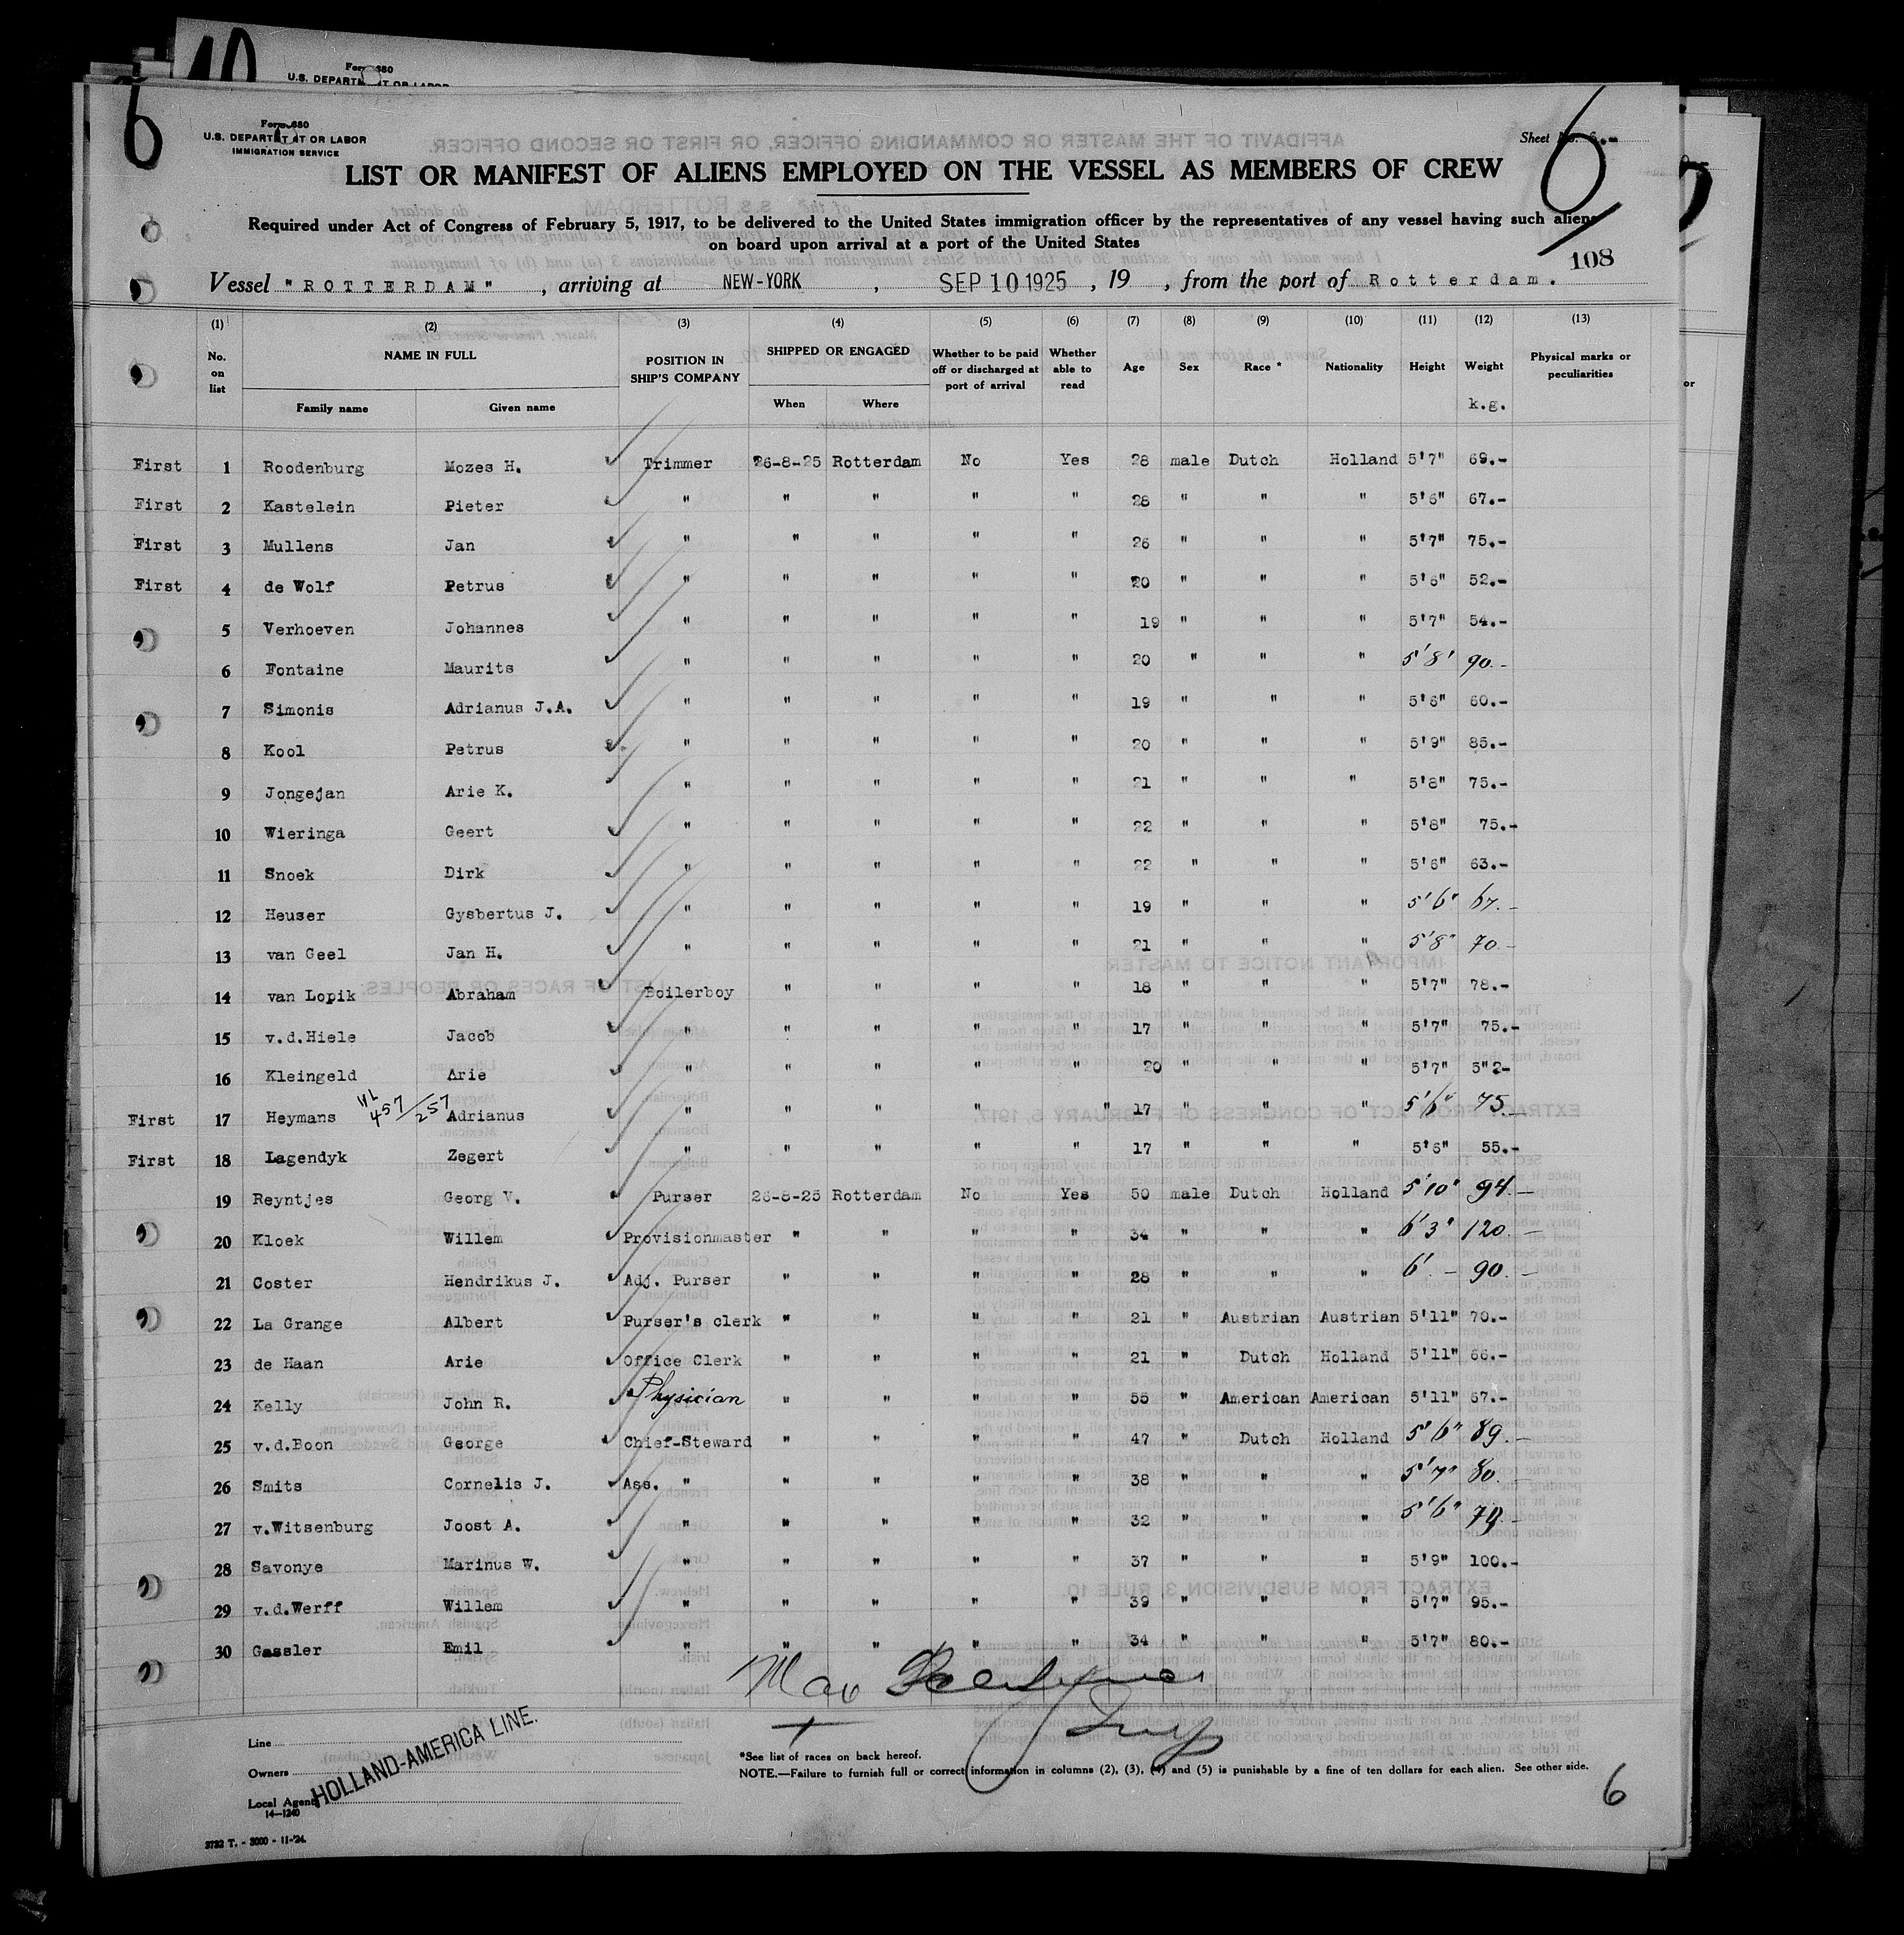 6
Form 680
U.S. DEPARTMENT OR LABOR
IMMIGRATION SERVICE
Sheet No. 6.-
6
LIST OR MANIFEST OF ALIENS EMPLOYED ON THE VESSEL AS MEMBERS OF CREW
Required under Act of Congress of February 5, 1917, to be delivered to the United States immigration officer by the representatives of any vessel having such aliens
on board upon arrival at a port of the United States
108
Vessel "ROTTERDAM", arriving at NEW-YORK, SEP 10 1925, 19 , from the port of Rotterdam.
(1) (2) (3) (4) (5) (6) (7) (8) (9) (10) (11) (12) (13)
No. on list NAME IN FULL POSITION IN SHIP'S COMPANY SHIPPED OR ENGAGED Whether to be paid off or discharged at port of arrival Whether able to read Age Sex Race * Nationality Height Weight Physical marks or peculiarities
Family name Given name When Where k.g.
First 1 Roodenburg Mozes H. Trimmer 26-8-25 Rotterdam No Yes 28 male Dutch Holland 5'7" 69.-
First 2 Kastelein Pieter " " " " " 28 " " " 5'6" 67.-
First 3 Mullens Jan " " " " " 26 " " " 5'7" 75.-
First 4 de Wolf Petrus " " " " " 20 " " " 5'6" 52.-
5 Verhoeven Johannes " " " " " 19 " " " 5'7" 54.-
6 Fontaine Maurits " " " " " 20 " " " 5'8' 90.-
7 Simonis Adrianus J.A. " " " " " 19 " " " 5'6" 60.-
8 Kool Petrus " " " " " 20 " " " 5'9" 85.-
9 Jongejan Arie K. " " " " " 21 " " " 5'8" 75.-
10 Wieringa Geert " " " " " 22 " " " 5'8" 75.-
11 Snoek Dirk " " " " " 22 " " " 5'6" 63.-
12 Heuser Gysbertus J. " " " " " 19 " " " 5'6" 67.-
13 van Geel Jan H. " " " " " 21 " " " 5'8" 70.-
14 van Lopik Abraham Boilerboy " " " " 18 " " " 5'7" 78.-
15 v.d.Hiele Jacob " " " " " 17 " " " 5'7" 75.-
16 Kleingeld Arie " " " " " 20 " " " 5'7" 5"2-
First 17 Heymans 457/257 Adrianus " " " " " 17 " " " 5'6" 75.-
First 18 Lagendyk Zegert " " " " " 17 " " " 5'6" 55.-
19 Reyntjes Georg V. Purser 26-8-25 Rotterdam No Yes 50 male Dutch Holland 5'10" 94.-
20 Kloek Willem Provisionmaster " " " " 34 " " " 6'3" 120.-
21 Coster Hendrikus J. Adj. Purser " " " " 28 " " " 6'- 90.-
22 La Grange Albert Purser's clerk " " " " 21 " Austrian Austrian 5'11" 70.-
23 de Haan Arie Office Clerk " " " " 21 " Dutch Holland 5'11" 66.-
24 Kelly John R. Physician " " " " 55 " American American 5'11" 67.-
25 v.d.Boon George Chief-Steward " " " " 47 " Dutch Holland 5'6" 89.-
26 Smits Cornelis J. Ass. " " " " " 38 " " " 5'7" 80.-
27 v.Witsenburg Joost A. " " " " " 32 " " " 5'6" 79.-
28 Savonye Marinus W. " " " " " 37 " " " 5'9" 100.-
29 v.d.Werff Willem " " " " " 39 " " " 5'7" 95.-
30 Gassler Emil " " " " " 34 " " " 5'7" 80.-
Max
Line
Owners
Local Agents
HOLLAND-AMERICA LINE.
14-1240
*See list of races on back hereof.
NOTE.—Failure to furnish full or correct information in columns (2), (3), (4) and (5) is punishable by a fine of ten dollars for each alien. See other side.
6
3732 T. - 3000 - 11-'24.